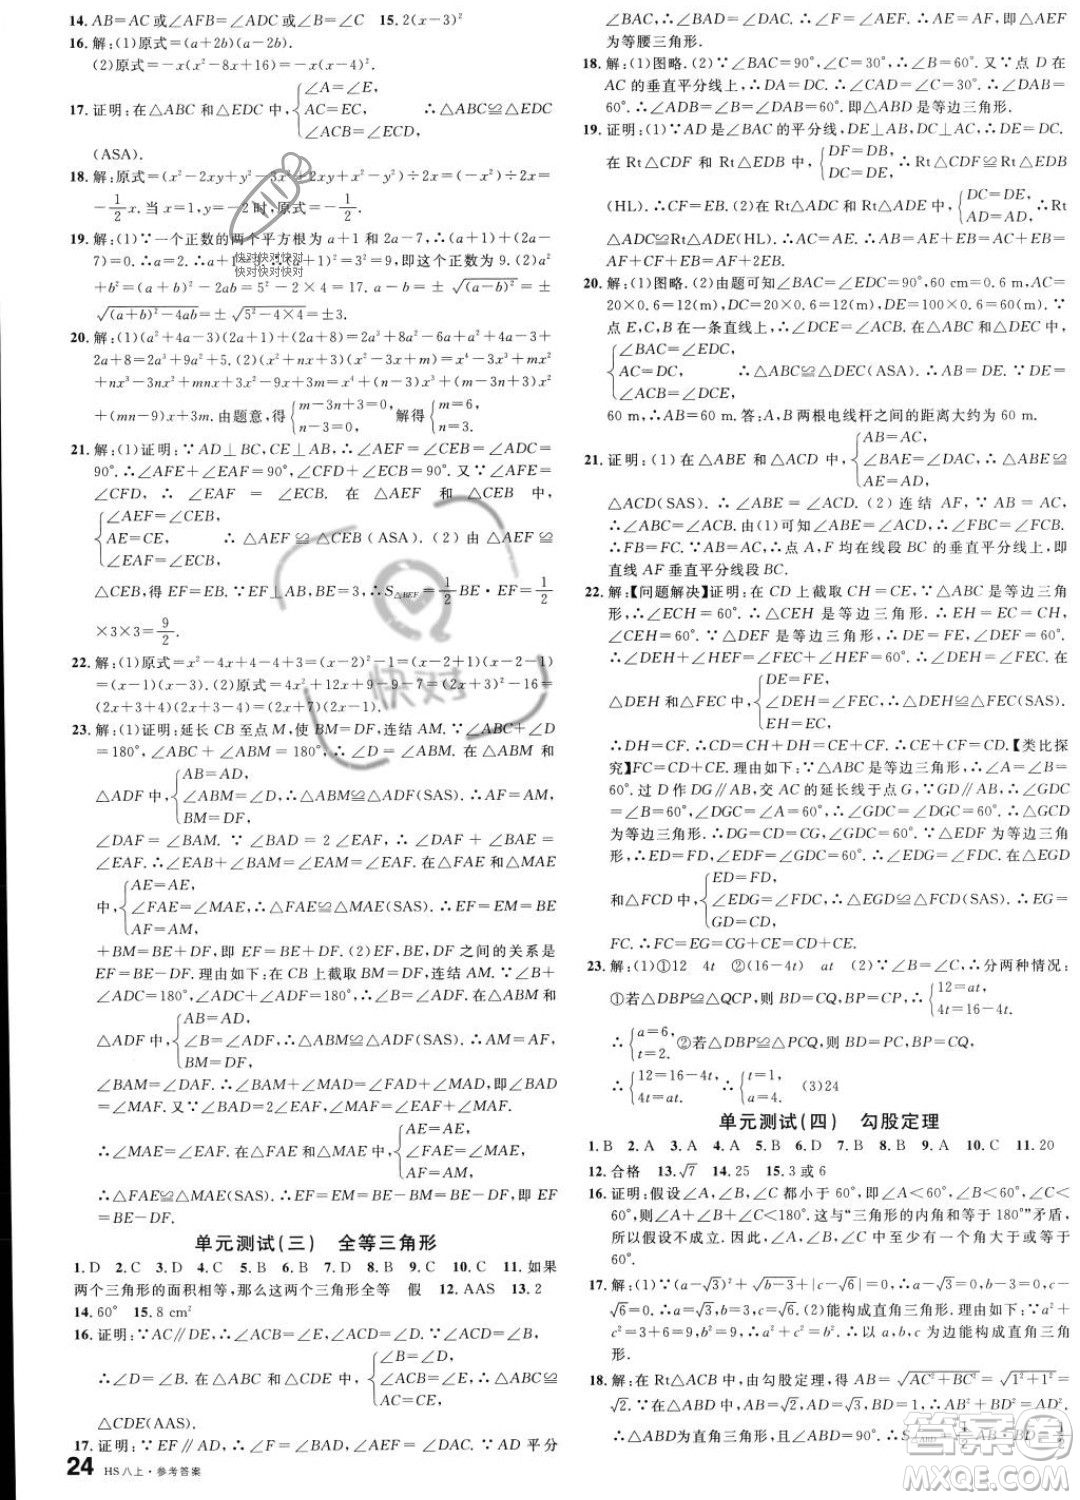 14. AB=AC或∠AFB=∠ADC或∠B=∠C 15. 2(x-3)²
16. 解:(1)原式=(a+2b)(a-2b).
(2)原式=-x(x²-8x+16)=-x(x-4)².
17. 证明:在△ABC 和△EDC 中,{∠A=∠E, AC=EC, ∠ACB=∠ECD, ∴△ABC≌△EDC
(ASA).
18. 解:原式=(x²-2xy+y²-3x²+2xy-y²+x²)÷2x=(-x²)÷2x=
-1/2x. 当 x=1,y=-2时,原式=-1/2.
19. 解:(1)∵一个正数的两个平方根为a+1和2a-7.∴a+1+2a-7=
0.∴a=2.∴a+1=3.∴(a+1)²=3²=9,即这个正数为9.(2)a²
+b²=(a+b)²-2ab=5²-2×4=17. a-b=±√(a-b)²=±
√(a+b)²-4ab=±√5²-4×4=±3.
20. 解:(1)(a²+4a-3)(2a+1)÷(2a+1)
2a+8=2a³+9a²+5. (2)(x²+nx+3)(x²-3x+m)=x⁴-3x³+mx²+
nx³-3nx²+mnx+3x²-9x+3m=x⁴+(n-3)x³+(m-3n+3)x²
+(mn-9)x+3m. 由题意,得{m-3n+3=0, n-3=0. 解得{m=6, n=3.
21. 解:(1)证明:∵AD⊥BC,CE⊥AB,∴∠AEF=∠CEB=∠ADC=
90°.∴∠AFE+∠EAF=90°,∠CFD+∠ECB=90°. 又∵∠AFE=
∠CFD,∴∠EAF=∠ECB. 在△AEF 和△CEB 中,
{∠AEF=∠CEB, AE=CE, ∠EAF=∠ECB, ∴△AEF≌△CEB (ASA). (2) 由△AEF≌
△CEB,得EF=EB.∵EF⊥AB,BE=3,∴S△BEF=1/2BE·EF=1/2
×3×3=9/2.
22. 解:(1)原式=x²-4x+4-4+3=(x-2)²-1=(x-2+1)(x-2-1)
=(x-1)(x-3). (2)原式=4x²+12x+9-9-7=(2x+3)²-16=
(2x+3+4)(2x+3-4)=(2x+7)(2x-1).
23. 解:(1)证明:延长 CB 至点 M,使 BM=DF,连结 AM.∵∠ABC+∠D
=180°,∠ABC+∠ABM=180°,∴∠D=∠ABM. 在△ABM 和
△ADF 中,{AB=AD, ∠ABM=∠D, BM=DF, ∴△ABM≌△ADF(SAS).∴AM=AF,
∠DAF=∠BAM.∵∠BAD=2∠EAF,∴∠DAF+∠BAE=
∠EAF.∴∠EAB+∠BAM=∠EAM=∠EAF. 在△FAE 和△MAE
中,{AE=AE, ∠FAE=∠MAE, AF=AM, ∴△FAE≌△MAE(SAS).∴EF=EM=BE
+BM=BE+DF,即 EF=BE+DF. (2)EF、BE、DF 之间的关系是
EF=BE-DF. 理由如下:在 CB 上截取 BM=DF,连结 AM.∵∠B+
∠ADC=180°,∠ADC+∠ADF=180°,∴∠B=∠ADF. 在△ABM 和
△ADF 中,{AB=AD, ∠B=∠ADF, BM=DF, ∴△ABM≌△ADF(SAS).∴AM=AF,
∠BAM=∠DAF.∴∠BAM+∠MAD=∠FAD+∠MAD,即∠BAD=
∠MAF. 又∵∠BAD=2∠EAF,∴∠MAF=2∠EAF.∴∠MAE=∠EAF.
∴∠MAE=∠FAE. 在△FAE 和△MAE 中,{AE=AE, ∠FAE=∠MAE, AF=AM,
∴△FAE≌△MAE(SAS).∴EF=EM=BE-BM=BE-DF,即 EF
=BE-DF.
单元测试(三) 全等三角形
1. D 2. C 3. D 4. C 5. B 6. B 7. D 8. B 9. C 10. C 11. 如果
两个三角形的面积相等,那么这两个三角形全等 假 12. AAS 13. 2
14. 60° 15. 8 cm²
16. 证明:∵AC∥DE,∴∠ACB=∠E,∠ACD=∠D.∵∠ACD=∠B,
∴∠B=∠D. 在△ABC 和△CDE 中,{∠B=∠D, ∠ACB=∠E, AC=CE, ∴△ABC≌
△CDE(AAS).
17. 证明:∵EF∥AD,∴∠AEF=∠BAD,∠F=∠DAC.∵AD 平分
24 HS八上·参考答案
∠BAC,∴∠BAD=∠DAC.∴∠F=∠AEF.∴AE=AF,即△AEF
为等腰三角形.
18. 解:(1)图略.(2)∵∠BAC=90°,∠C=30°,∴∠B=60°. 又∵点 D 在
AC 的垂直平分线上,∴DA=DC.∴∠CAD=∠C=30°.∴∠DAB=
60°.∴∠ADB=∠B=∠DAB=60°. 即△ABD 是等边三角形.
19. 证明:(1)∵AD 是∠BAC 的平分线,DE⊥AB,DC⊥AC,∴DE=DC.
在 Rt△CDF 和 Rt△EDB 中,{DF=DB, DC=DE, ∴Rt△CDF≌Rt△EDB
(HL).∴CF=EB. (2)在 Rt△ADC 和 Rt△ADE 中,{DC=DE, AD=AD, ∴Rt
△ADC≌Rt△ADE(HL).∴AC=AE.∴AB=AE+BE=AC+EB=
AF+CF+EB=AF+2EB.
20. 解:(1)图略. (2)由题可知∠BAC=∠EDC=90°,60 cm=0.6 m,AC=
20×0.6=12(m),DC=20×0.6=12(m),DE=100×0.6=60(m).∵
点 E、C、B 在一条直线上,∴∠DCE=∠ACB. 在△ABC 和△DEC 中,
{∠BAC=∠EDC, AC=DC, ∠ACB=∠DCE, ∴△ABC≌△DEC(ASA).∴AB=DE.∵DE=
60 m,∴AB=60 m. 答:A、B 两根电线杆之间的距离大约为60 m.
21. 证明:(1)在△ABE 和△ACD 中,{AB=AC, ∠BAE=∠DAC, AE=AD, ∴△ABE≌
△ACD(SAS).∴∠ABE=∠ACD. (2)连结 AF.∵AB=AC,
∴∠ABC=∠ACB. 由(1)可知∠ABE=∠ACD,∴∠FBC=∠FCB.
∴FB=FC.∵AB=AC,∴点 A、F 均在线段 BC 的垂直平分线上,即
直线 AF 垂直平分线段 BC.
22. 解:【问题解决】证明:在 CD 上截取 CH=CE,∵△ABC 是等边三角
形,∴∠ECH=60°.∴△CEH 是等边三角形.∴EH=EC=CH,
∠CEH=60°.∵△DEF 是等边三角形,∴DE=FE,∠DEF=60°.
∴∠DEH+∠HEF=∠FEC+∠HEF=60°.∴∠DEH=∠FEC. 在
△DEH 和△FEC 中,{DE=FE, ∠DEH=∠FEC, EH=EC, ∴△DEH≌△FEC(SAS).
∴DH=CF.∴CD=CH+DH=CE+CF.∴CE+CF=CD.【类比探
究】FC=CD+CE. 理由如下:∵△ABC 是等边三角形,∴∠A=∠B=
60°. 过 D 作 DG∥AB,交 AC 的延长线于点 G,∵GD∥AB,∴∠GDC=
∠B=60°,∠DGC=∠A=60°.∴∠GDC=∠DGC=60°.∴△GCD
为等边三角形.∴DG=CD=CG,∠GDC=60°.∵△EDF 为等边三角
形,∴ED=FD,∠EDF=∠GDC=60°.∴∠EDG=∠FDC. 在△EGD
和△FCD 中,{ED=FD, ∠EDG=∠FDC, GD=CD, ∴△EGD≌△FCD(SAS).∴EG=
FC.∴FC=EG=CG+CE=CD+CE.
23. 解:(1)①12 4t ②(16-4t) at (2)∵∠B=∠C,∴分两种情况:
①若△DBP≌△QCP,则 BD=CQ,BP=CP,∴{12=at, 4t=16-4t.
∴{a=6, t=2. ②若△DBP≌△PCQ,则 BD=PC,BP=CQ,
∴{12=16-4t, 4t=at. ∴{t=1, a=4. (3)24
单元测试(四) 勾股定理
1. B 2. A 3. A 4. A 5. B 6. D 7. B 8. B 9. A 10. C 11. 20
12. 合格 13. √7 14. 25 15. 3 或 6
16. 证明:假设∠A、∠B、∠C 都小于60°,即∠A<60°,∠B<60°,∠C<
60°,则∠A+∠B+∠C<180°. 这与“三角形的内角和等于180°”矛盾,
所以假设不成立,即∠A、∠B、∠C 中至少有一个角大于或等于
60°.
17. 解:(1)∵(a-√3)²+√b-3+|c-√6|=0,∴a-√3=0,b-3=0,c-
√6=0.∴a=√3,b=3,c=√6. (2)能构成直角三角形. 理由如下:∵a²+
c²=3+6=9,b²=3²=9,∴a²+c²=b².∴以 a,b,c 为边能构成直角三角
形.
18. 解:在 Rt△ACB 中,由勾股定理,得 AB=√AC²+BC²=√1²+1²=
√2. ∵在△ABD 中,AB=√2,AD=√3,BD=1,∴AB²+BD²=AD².
∴△ABD 为直角三角形,且∠ABD=90°.∴S△ABD=1/2
快对快对快对
快对快对快对
快对
答案圈
MXQE.COM